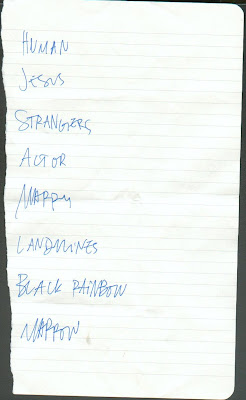 HUMAN
JESUS
STRANGERS
ACTOR
MARRY
LANDMINES
BLACK RAINBOW
MARROW